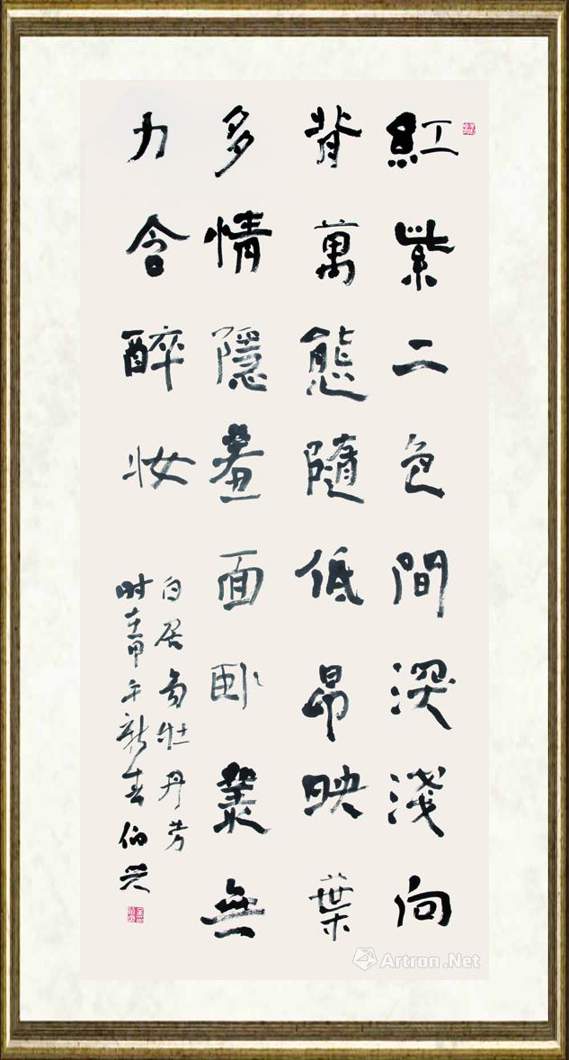 紅紫二色間深淺向
背萬態隨低昂映葉
多情隱羞面卧叢無
力含醉妆
白居易牡丹芳
时在甲午新春伯
Artron.Net